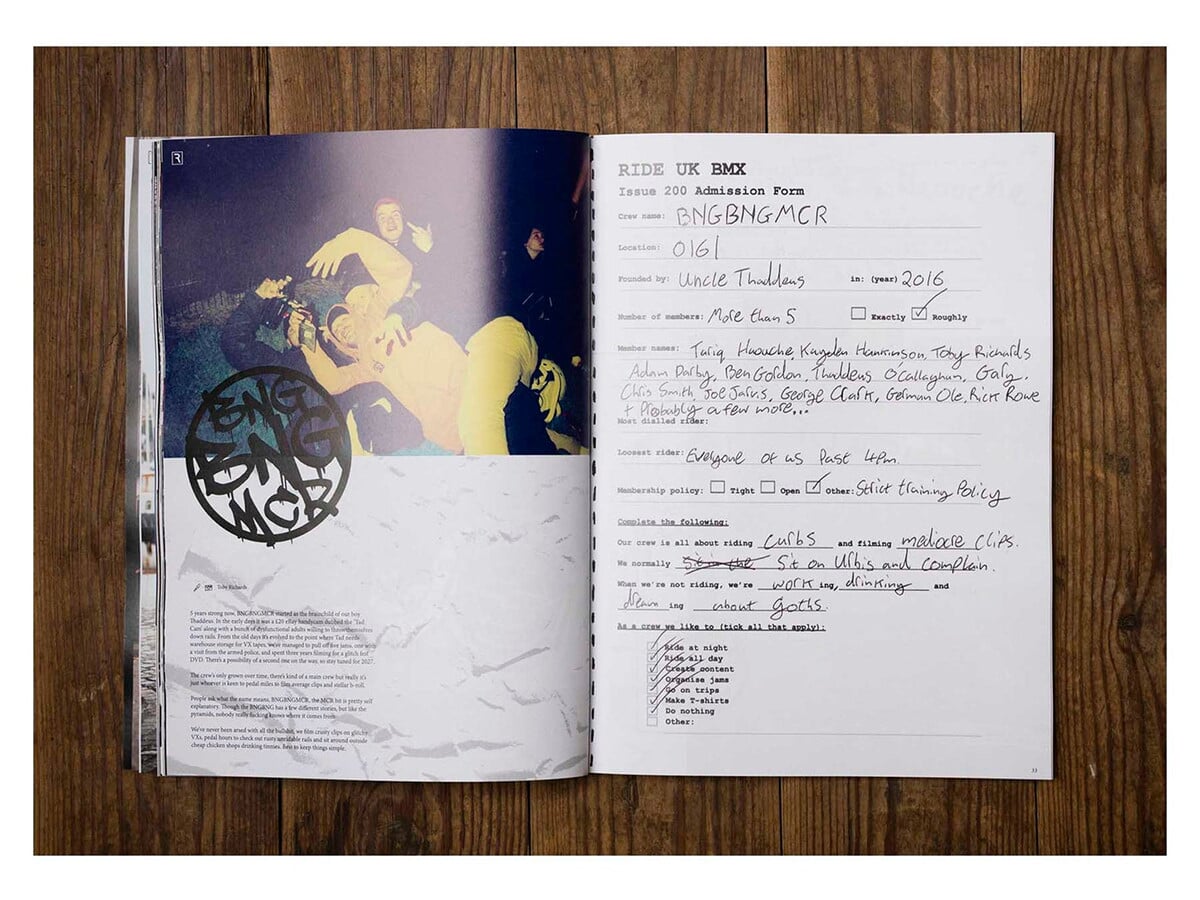 R
BNG
BNG
MCR
Toby Richards
5 years strong now, BNGBNGMCR started as the brainchild of our boy
Thaddeus. In the early days it was a £20 eBay handycam dubbed the 'Tad
Cam' along with a bunch of dysfunctional adults willing to throw themselves
down rails. From the old days it's evolved to the point where Tad needs
warehouse storage for VX tapes, we've managed to pull off five jams, one with
a visit from the armed police, and spent three years filming for a glitch fest
DVD. There's a possibility of a second one on the way, so stay tuned for 2027.
The crew's only grown over time, there's kind of a main crew but really it's
just whoever is keen to pedal miles to film average clips and stellar b-roll.
People ask what the name means, BNGBNGMCR, the MCR bit is pretty self
explanatory. Though the BNGBNG has a few different stories, but like the
pyramids, nobody really fucking knows where it comes from.
We've never been arsed with all the bullshit, we film crusty clips on glitchy
VXs, pedal hours to check out rusty unridable rails and sit around outside
cheap chicken shops drinking tinnies. Best to keep things simple.
RIDE UK BMX
Issue 200 Admission Form
Crew name: BNGBNGMCR
Location: 0161
Founded by: Uncle Thaddeus in: (year) 2016
Number of members: More than 5 Exactly Roughly
Member names: Tariq Haouche, Kayden Hankinson, Toby Richards
Adam Darby, Ben Gordon, Thaddeus O'Callaghan, Galy,
Chris Smith, Joe Jarvis, George Clark, German Ole, Rick Rowe
+ Probably a few more...
Most dialled rider:
Loosest rider: Everyone of us Past 4pm.
Membership policy: Tight Open Other: Strict training Policy
Complete the following:
Our crew is all about riding curbs and filming mediocre clips.
We normally Sit in the Sit on Urbis and complain.
When we're not riding, we're work ing, drinking and
dream ing about Goths.
As a crew we like to (tick all that apply):
Ride at night
Ride all day
Create content
Organise jams
Go on trips
Make T-shirts
Do nothing
Other:
33